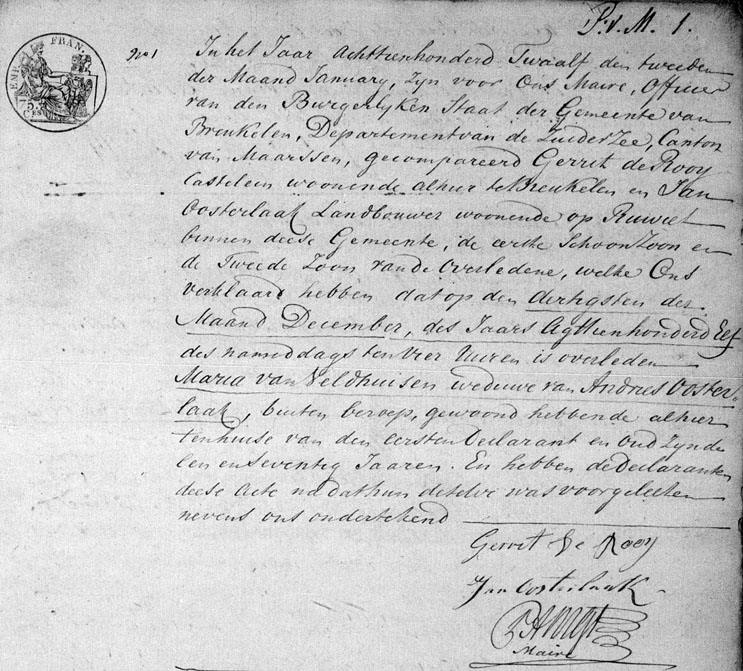 P. v. M. 1.
EMP. FRAN.
75.
CES
No 1
In het Jaar Achttienhonderd Twaalf den tweeden
der Maand January, Zyn voor Ons Maire, Officier
van den Burgerlyken Staat der Gemeente van
Breukelen, Departement van de Zuiderzee, Canton
van Maarssen, gecompareerd Gerrit de Rooy
Castelein woonende alhier te Breukelen en Jan
Oosterlaak Landbouwer woonende op Ruwiel
binnen deese Gemeente, de eerste Schoonzoon en
de Tweede Zoon van de Overledene, welke Ons
verklaard hebben dat op den dertigsten der
Maand December, des Jaars Agttienhonderd Elf
des namiddags ten vier Uuren is overleden
Maria van Veldhuisen weduwe van Andries Ooster-
laak, buiten beroep, gewoond hebbende alhier
tenhuise van den eersten Declarant en oud Zynde
een en Seventig Jaaren. En hebben de Declaranten
deese Acte na dat hun deselve was voorgeleesen
nevens ons ondertekend
Gerrit De Rooy
Jan Oosterlaak
Maire